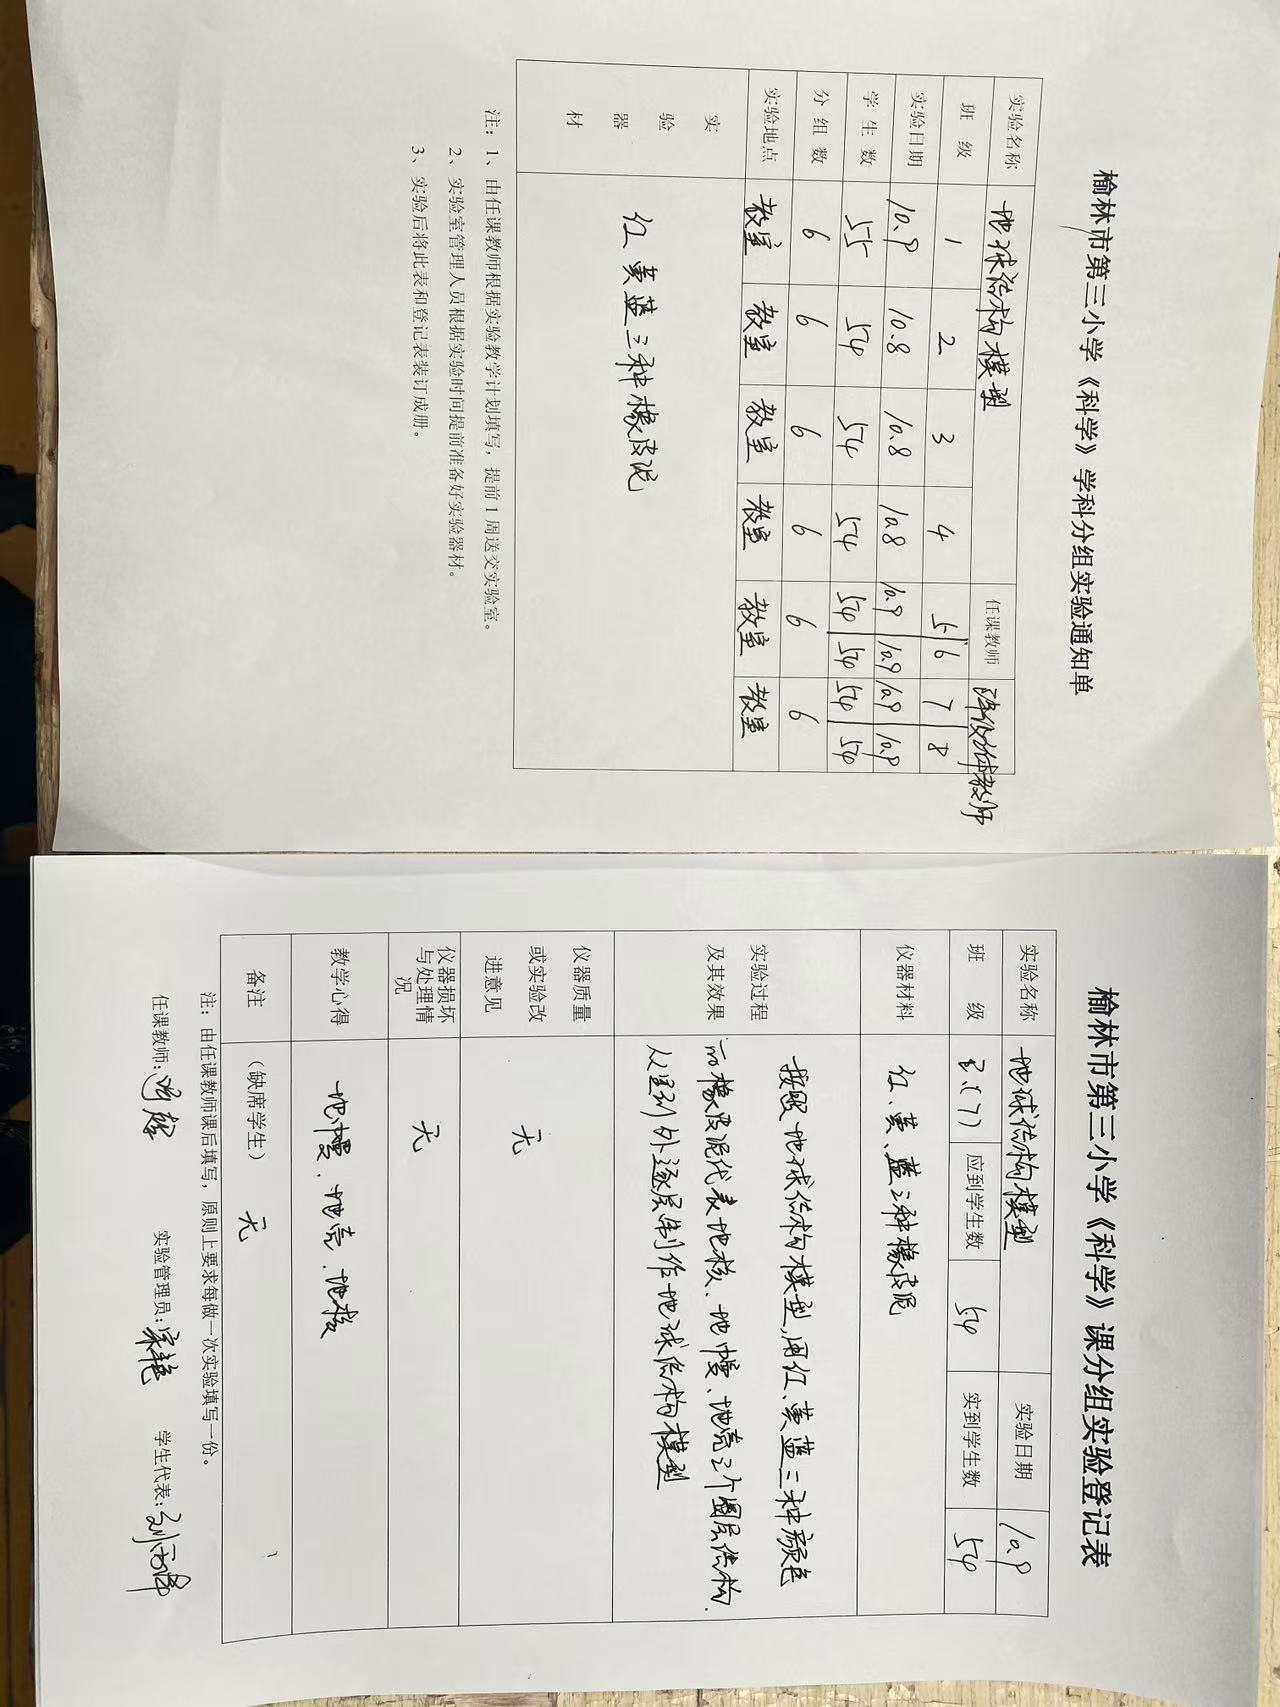 榆林市第三小学《科学》学科分组实验通知单
实验名称 地球结构模型 任课教师
班级 1 2 3 4 5 6 7 8
实验日期 10.9 10.8 10.8 10.8 10.9 10.9 10.9 10.9
学生数 55 54 54 54 54 54 54 54
分组数 6 6 6 6 6 6
实验地点 教室 教室 教室 教室 教室 教室
实验器材 红 黄 蓝三种橡皮泥
注：1、由任课教师根据实验教学计划填写，提前1周送交实验室。
2、实验室管理人员根据实验时间提前准备好实验器材。
3、实验后将此表和登记表装订成册。
榆林市第三小学《科学》课分组实验登记表
实验名称 地球结构模型 实验日期 10.9
班级 应到学生数 54 实到学生数 54
仪器材料 红、黄、蓝三种橡皮泥
实验过程及其效果 按照地球结构模型,用红、黄蓝三种颜色
而橡皮泥代表地核、地幔、地壳三个圈层结构.
从里到外逐层制作地球结构模型
仪器质量或实验改进意见 无
仪器损坏与处理情况 无
教学心得 地幔、地壳、地核
备注 （缺席学生） 无
注：由任课教师课后填写，原则上要求每做一次实验填写一份。
任课教师: 实验管理员:宋艳 学生代表: